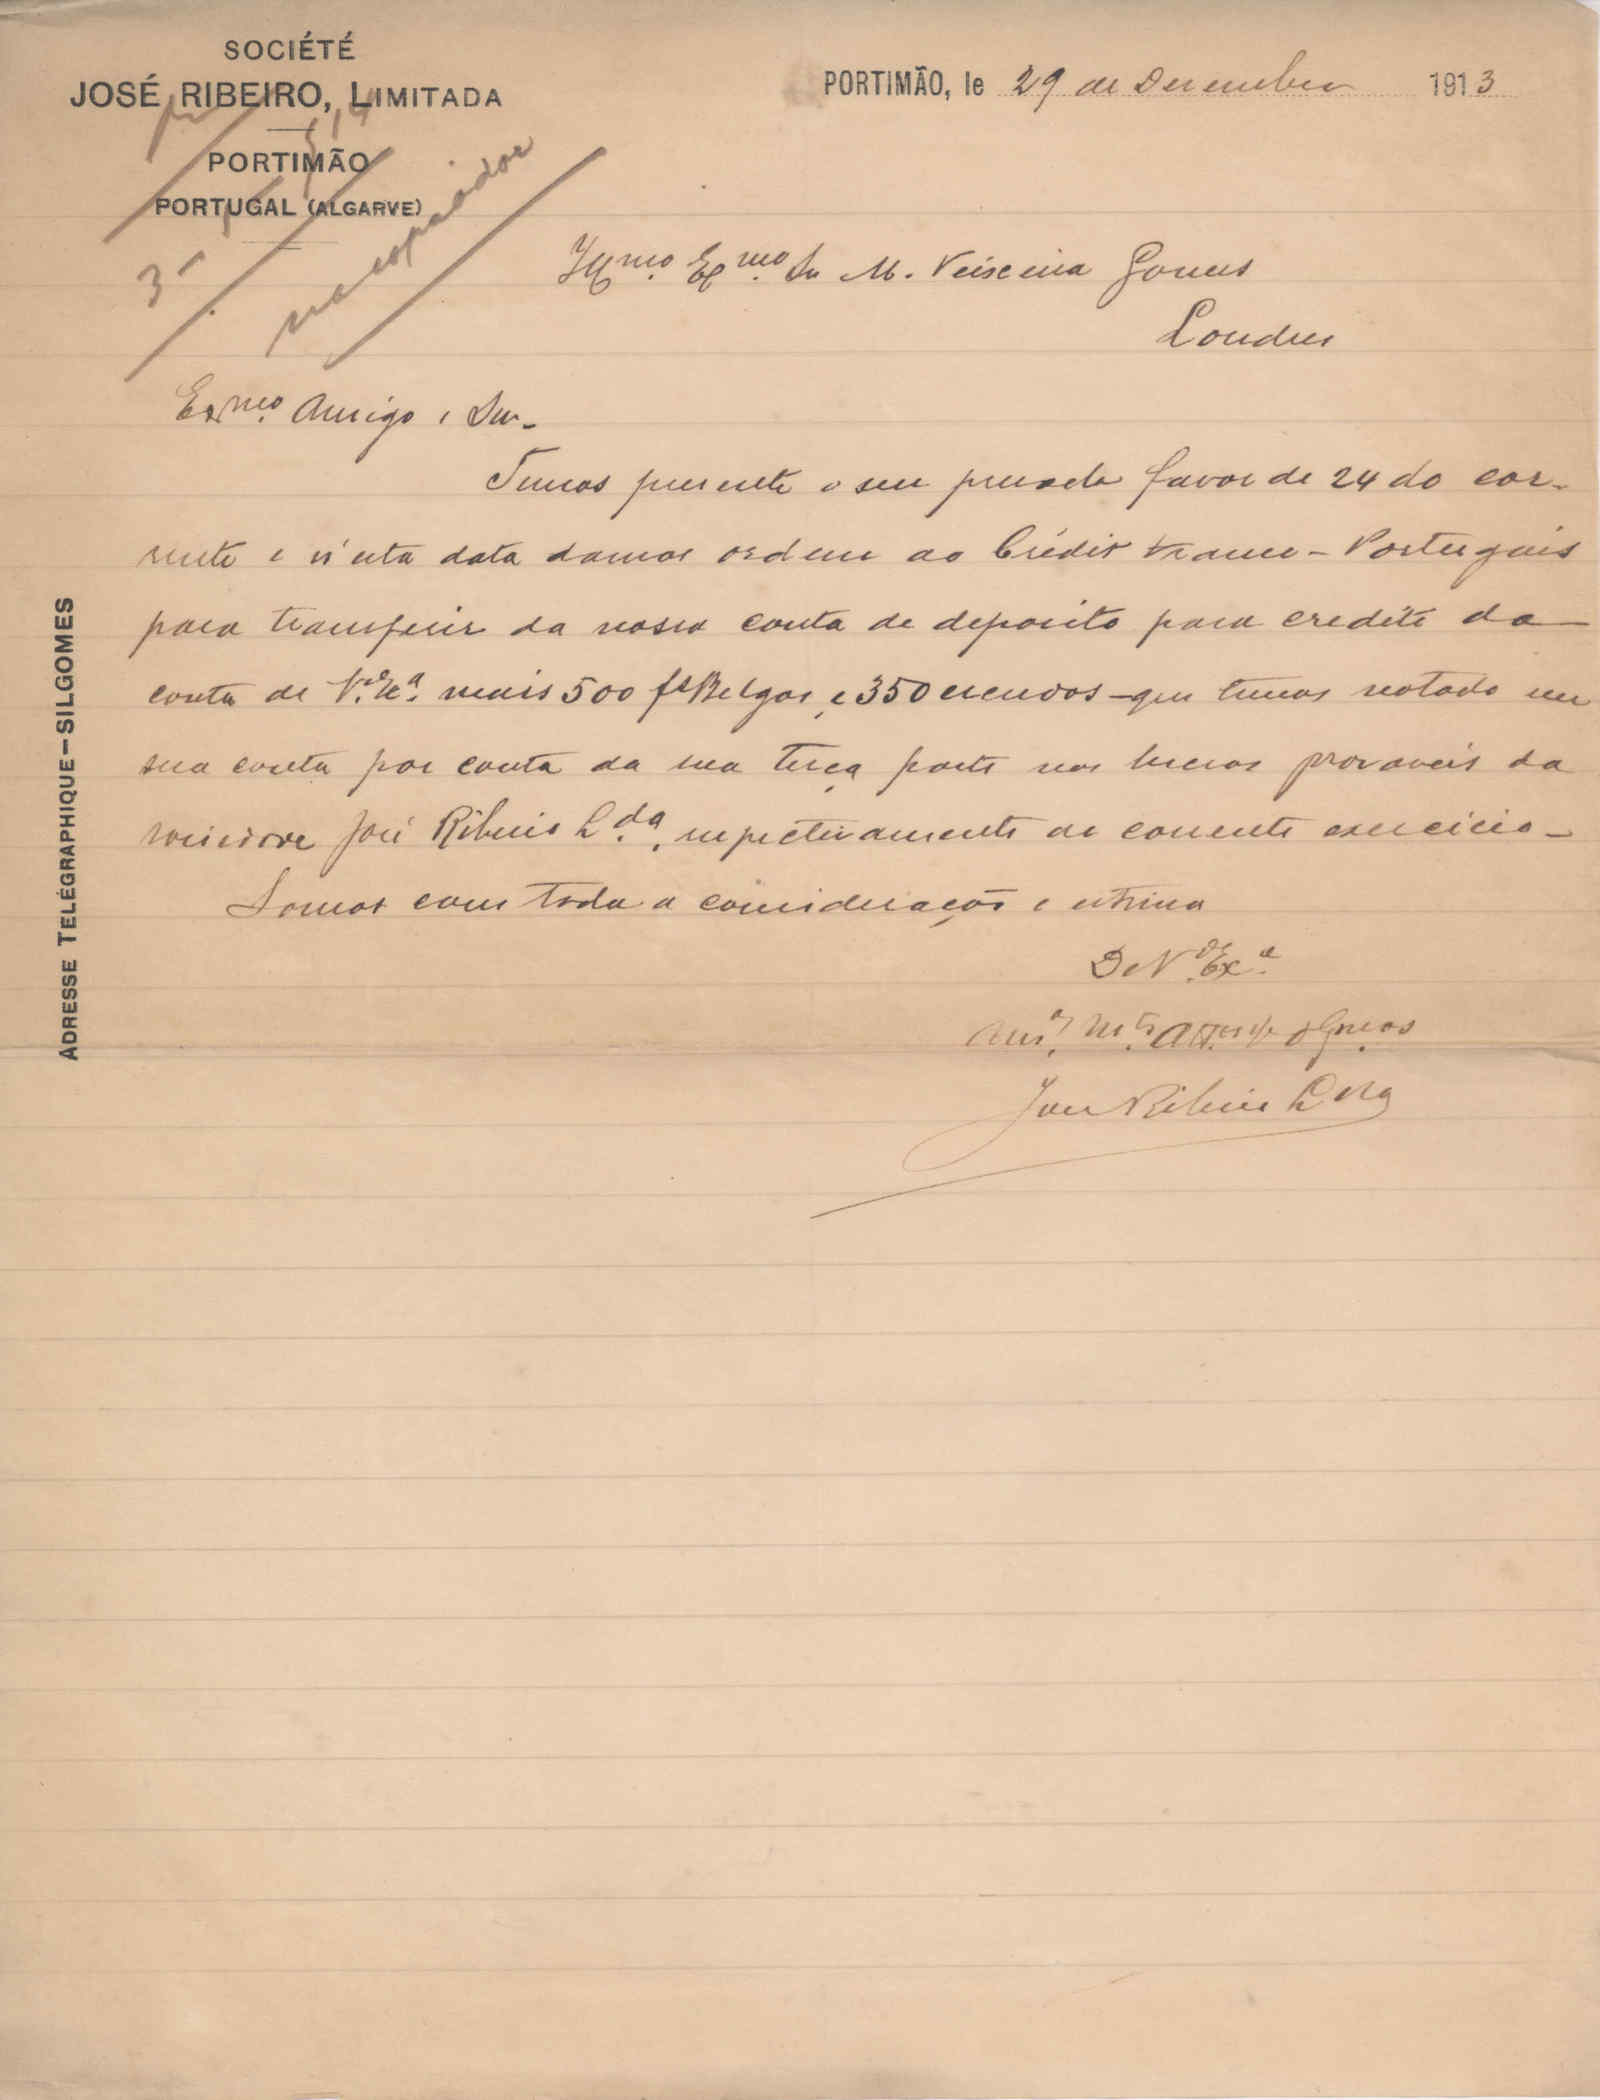 SOCIÉTÉ
JOSÉ RIBEIRO, LIMITADA
PORTIMÃO
PORTUGAL (ALGARVE)
PORTIMÃO, le 29 de Dezembro 1913
Illmo. Exmo. Sr M. Teixeira Gomes
Londres
Exmo. Amigo e Snr.
Temos presente o seu prezado favor de 24 do cor-
rente e n'esta data damos ordem ao Crédit Franco-Portugais
para transferir da nossa conta de deposito para credito da
conta de V. Exa. mais 500 fs Belgas, e 350 escudos que temos notado em
sua conta por conta da sua terça parte nos lucros provaveis da
José Ribeiro Lda, respectivamente ao corrente exercicio
Somos com toda a consideração e estima
De V. Exa.
José Ribeiro Lda
ADRESSE TELÉGRAPHIQUE-SILGOMES